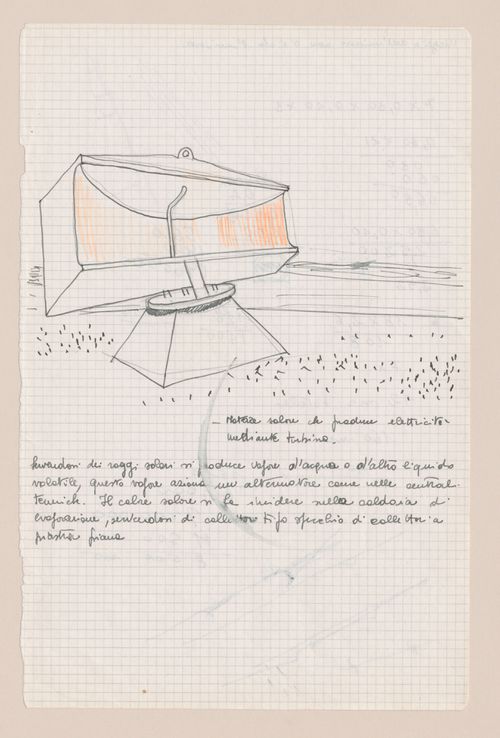 - Motore solare che produce elettricità
mediante turbina.
Servendosi dei raggi solari si produce vapore d'acqua o d'altro liquido
volatile, questo vapore aziona un alternatore come nelle centrali
termiche. Il calore solare si fa incidere nella caldaia di
evaporazione, servendosi di collettori tipo specchio o di collettori a
piastra piana